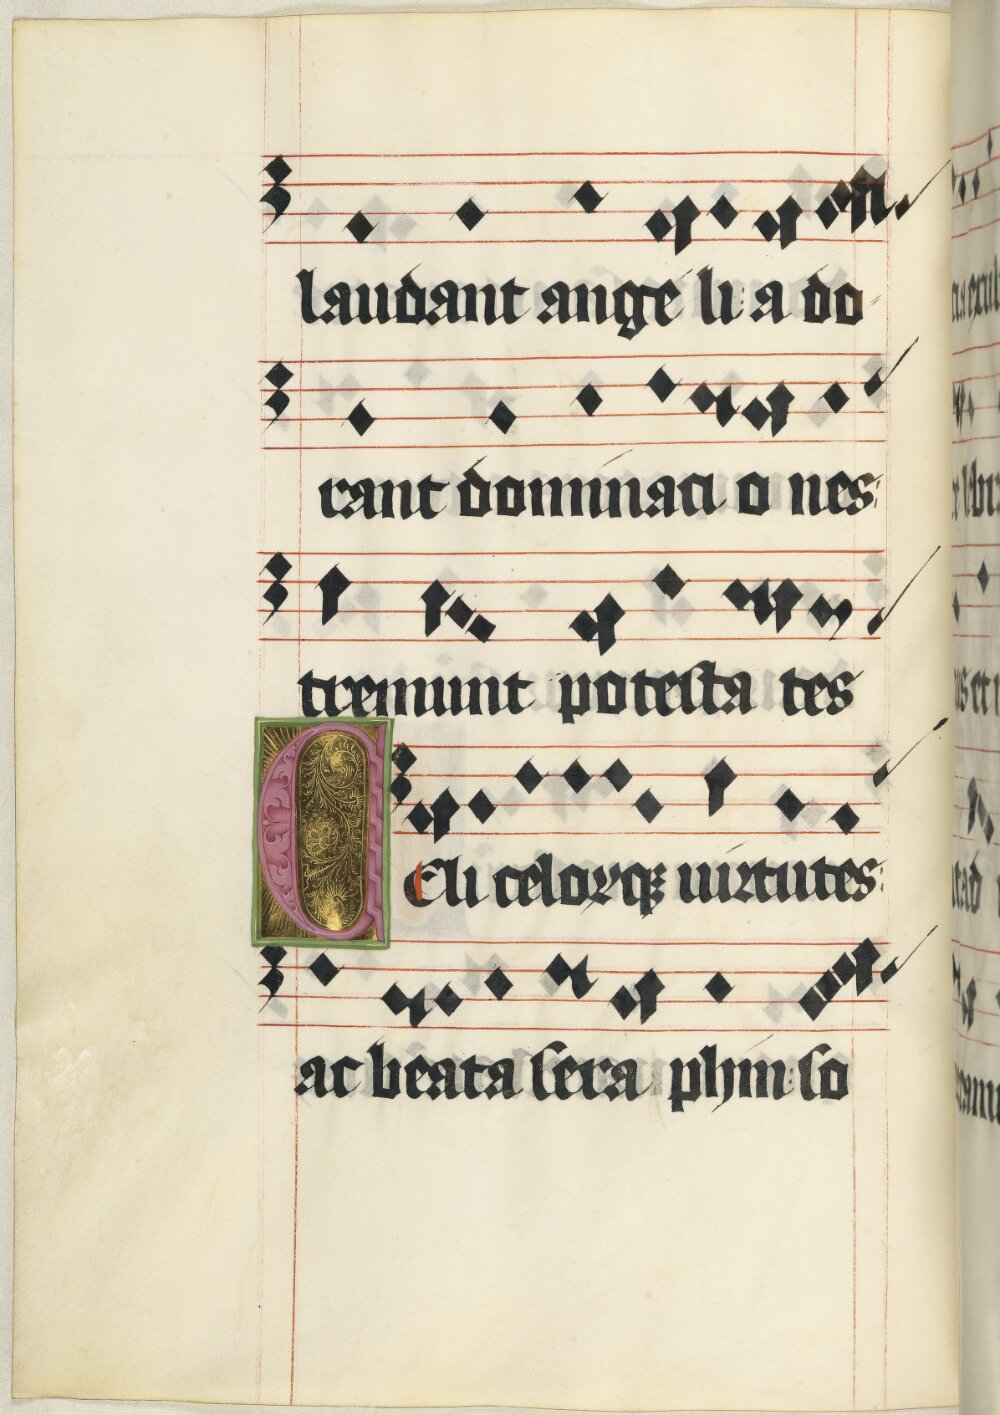 laudant ange li: a do
rant dominati o nes:
tremunt potesta tes
CEli celorꝝqꝫ uirtutes:
ac beata sera phin: so